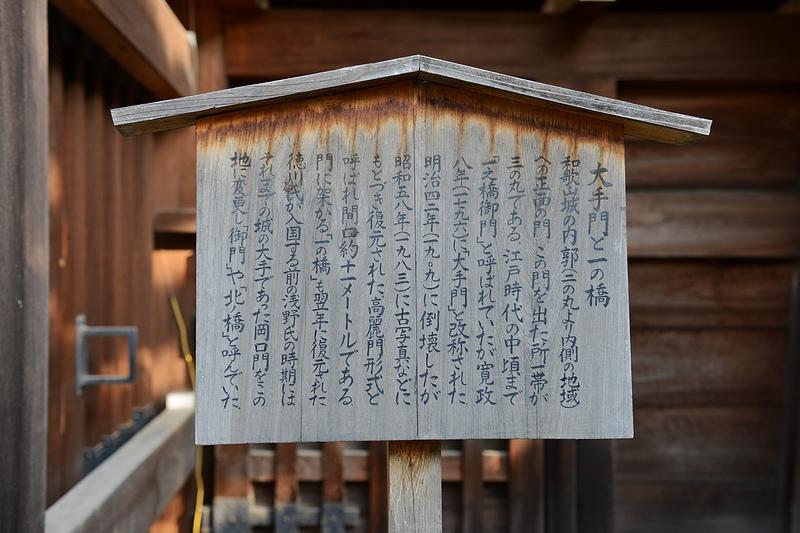 大手門と一の橋
和歌山城の内郭(二の丸より内側の地域)
への正面の門 この門を出た所一帯が
三の丸である 江戸時代の中頃まで
「一之橋御門」と呼ばれていたが寛政
八年(一七九六)に「大手門」と改称された
明治四二年(一九〇九)に倒壊したが
昭和五八年(一九八三)に古写真などに
もとづき復元された 高麗門形式と
呼ばれ間口約十一メートルである
門に架かる「一の橋」も翌年に復元された
徳川氏が入国する前の浅野氏の時期には
それまでの城の大手であった岡口門をこの
地に変更し「御門」や「北ノ橋」と呼んでいた